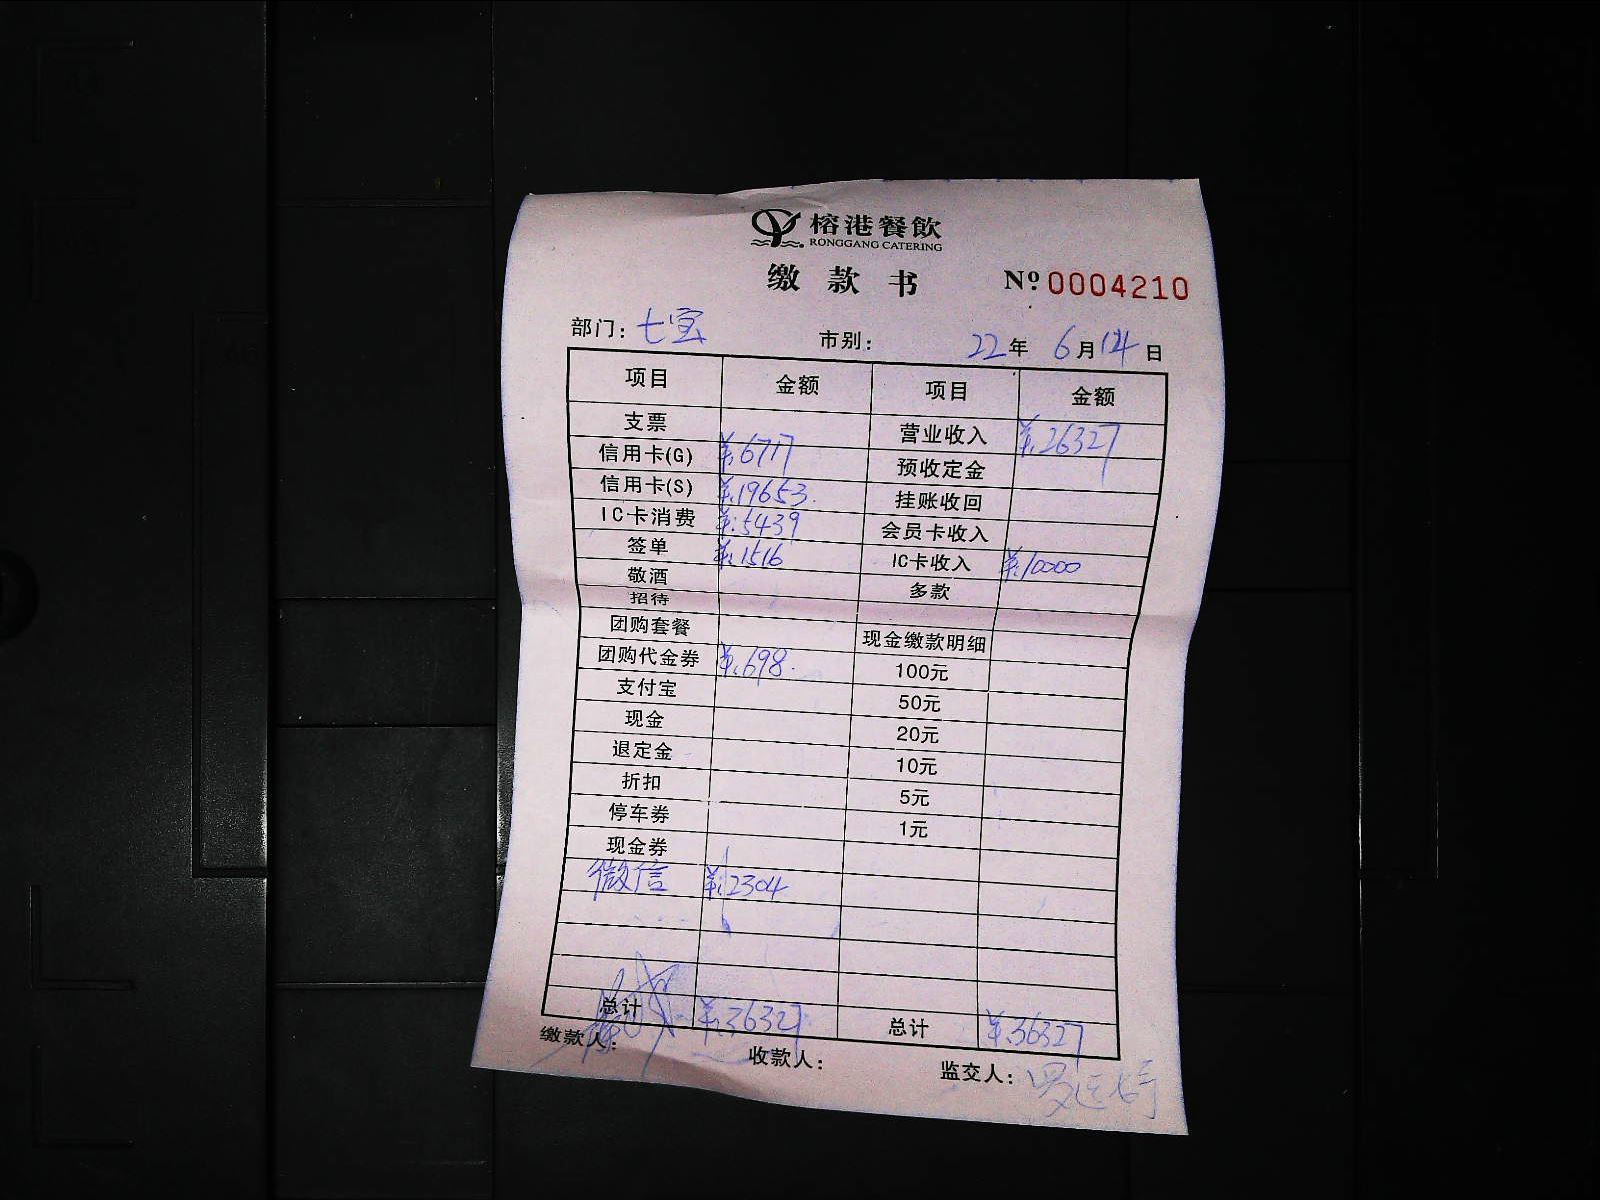 榕港餐飲
RONGGANG CATERING
缴款书 № 0004210
部门：七宝 市别： 22年 6月14日
项目 金额 项目 金额
支票 营业收入 ¥:26327
信用卡(G) ¥:6717 预收定金
信用卡(S) ¥:19653. 挂账收回
IC卡消费 ¥:5439 会员卡收入
签单 ¥:1516 IC卡收入 ¥:10000
敬酒 多款
招待
团购套餐 现金缴款明细
团购代金券 ¥:698. 100元
支付宝 50元
现金 20元
退定金 10元
折扣 5元
停车券 1元
现金券
微信 ¥:2304
总计 ¥:36327 总计 ¥:36327
缴款人： 收款人： 监交人：